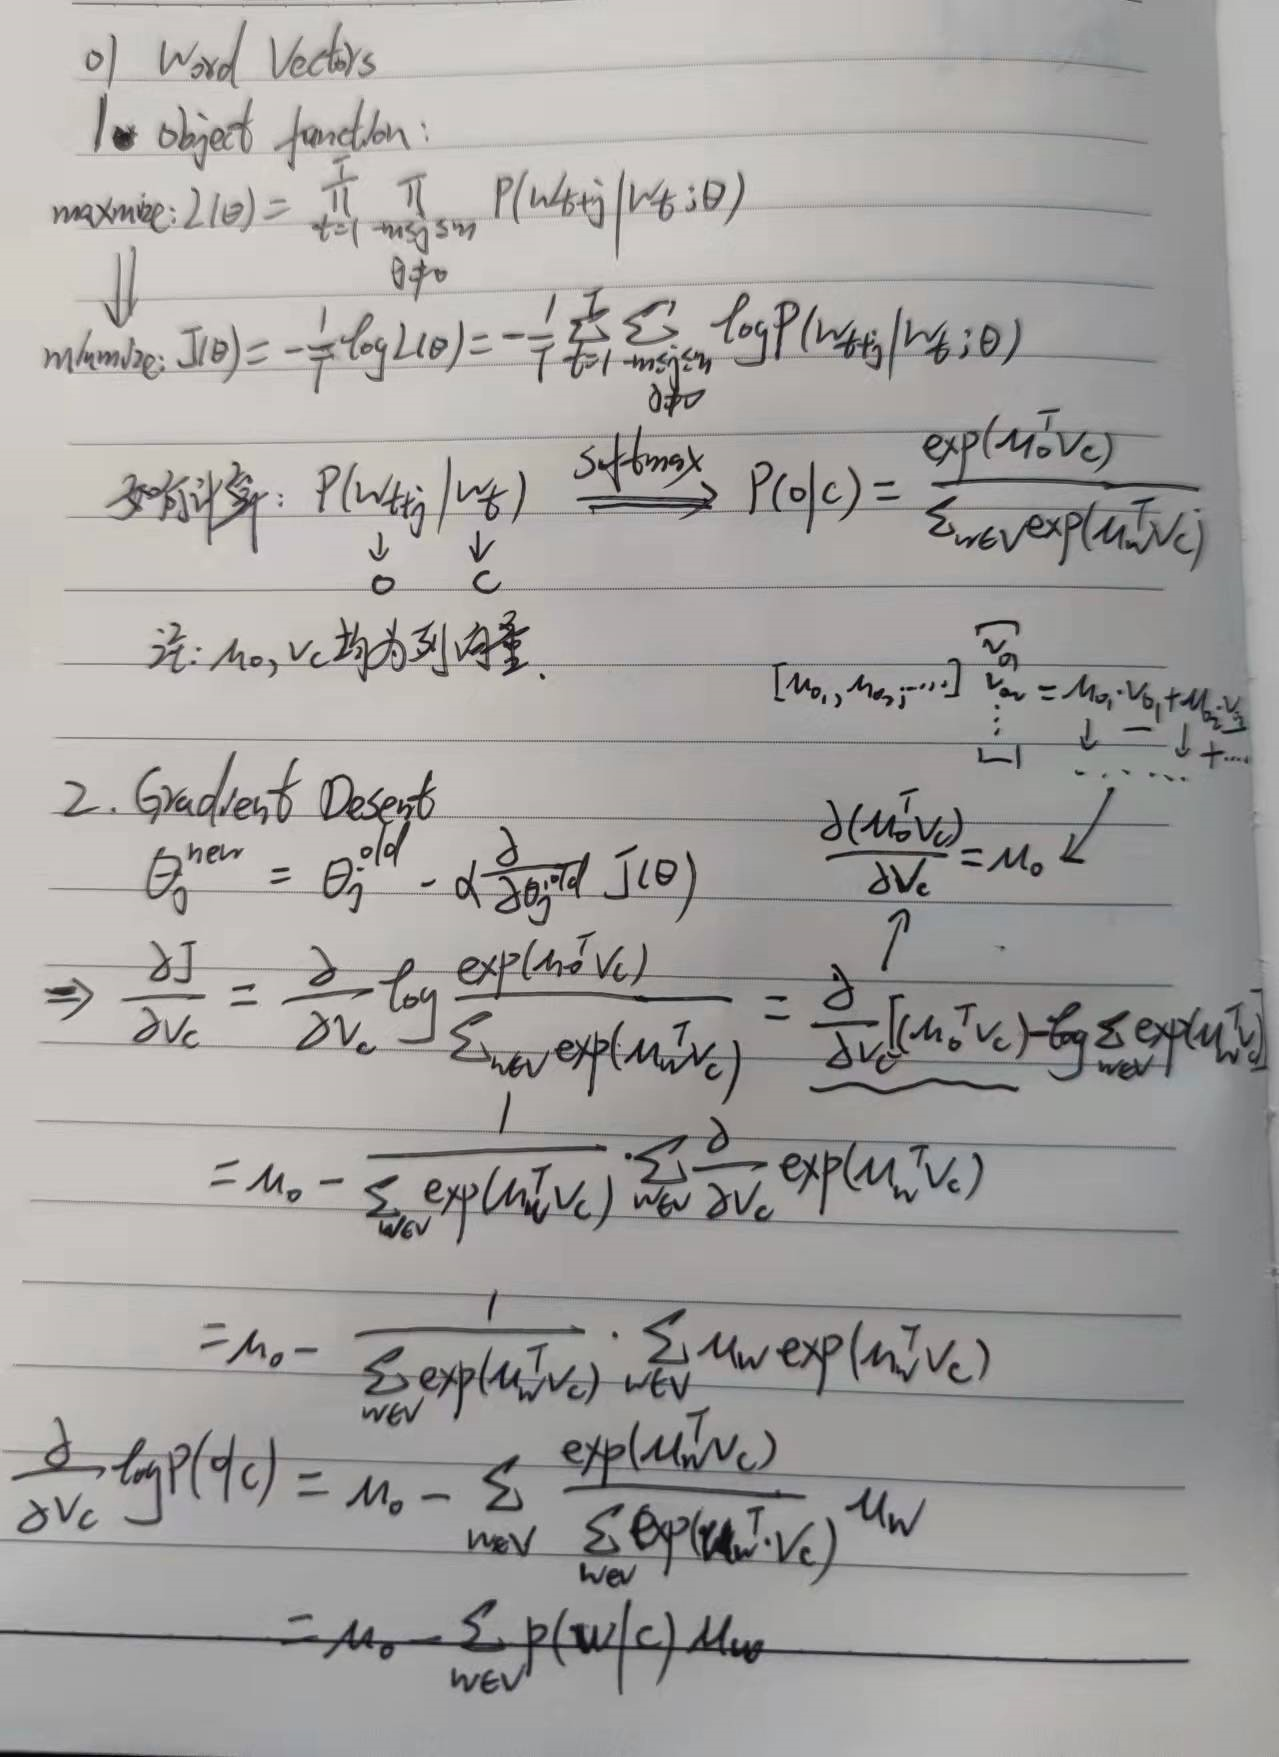 01 Word Vectors
1. Object function:
maxmize: L(θ) = ∏_{t=1}^{T} ∏_{-m≤j≤m, j≠0} P(w_{t+j} | w_t ; θ)
⇓
minmize: J(θ) = -1/T log L(θ) = -1/T ∑_{t=1}^{T} ∑_{-m≤j≤m, j≠0} log P(w_{t+j} | w_t ; θ)
如何计算: P(w_{t+j} | w_t) ⟹ softmax P(o|c) = exp(u_o^T v_c) / ∑_{w∈V} exp(u_w^T v_c)
↓ ↓
o c
注: u_o, v_c 均为列向量.
[u_{o1}, u_{o2}, ....] [v_{o1} v_{o2} ⋮] = u_{o1}·v_{o1} + u_{o2}·v_{o2} + ....
↓ ↓
......
2. Gradient Desent
θ_j^{new} = θ_j^{old} - α ∂/∂θ_j^{old} J(θ)
∂(u_o^T v_c)/∂v_c = u_o ↙
↑
⇒ ∂J/∂v_c = ∂/∂v_c log exp(u_o^T v_c) / ∑_{w∈V} exp(u_w^T v_c) = ∂/∂v_c [(u_o^T v_c) - log ∑_{w∈V} exp(u_w^T v_c)]
= u_o - 1 / ∑_{w∈V} exp(u_w^T v_c) · ∑_{w∈V} ∂/∂v_c exp(u_w^T v_c)
= u_o - 1 / ∑_{w∈V} exp(u_w^T v_c) · ∑_{w∈V} u_w exp(u_w^T v_c)
∂/∂v_c log P(o|c) = u_o - ∑_{w∈V} exp(u_w^T v_c) / ∑_{w∈V} exp(u_w^T · v_c) u_w
= u_o - ∑_{w∈V} p(w|c) u_w